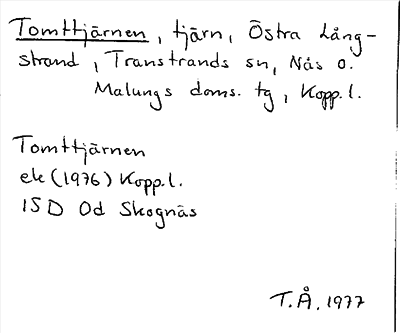 Tomttjärnen, tjärn, Östra Lång-
strand, Transtrands sn, Nås o.
Malungs doms. tg, Kopp. l.
Tomttjärnen
ek (1976) Kopp. l.
15 D Od Skognäs
T.Å. 1977